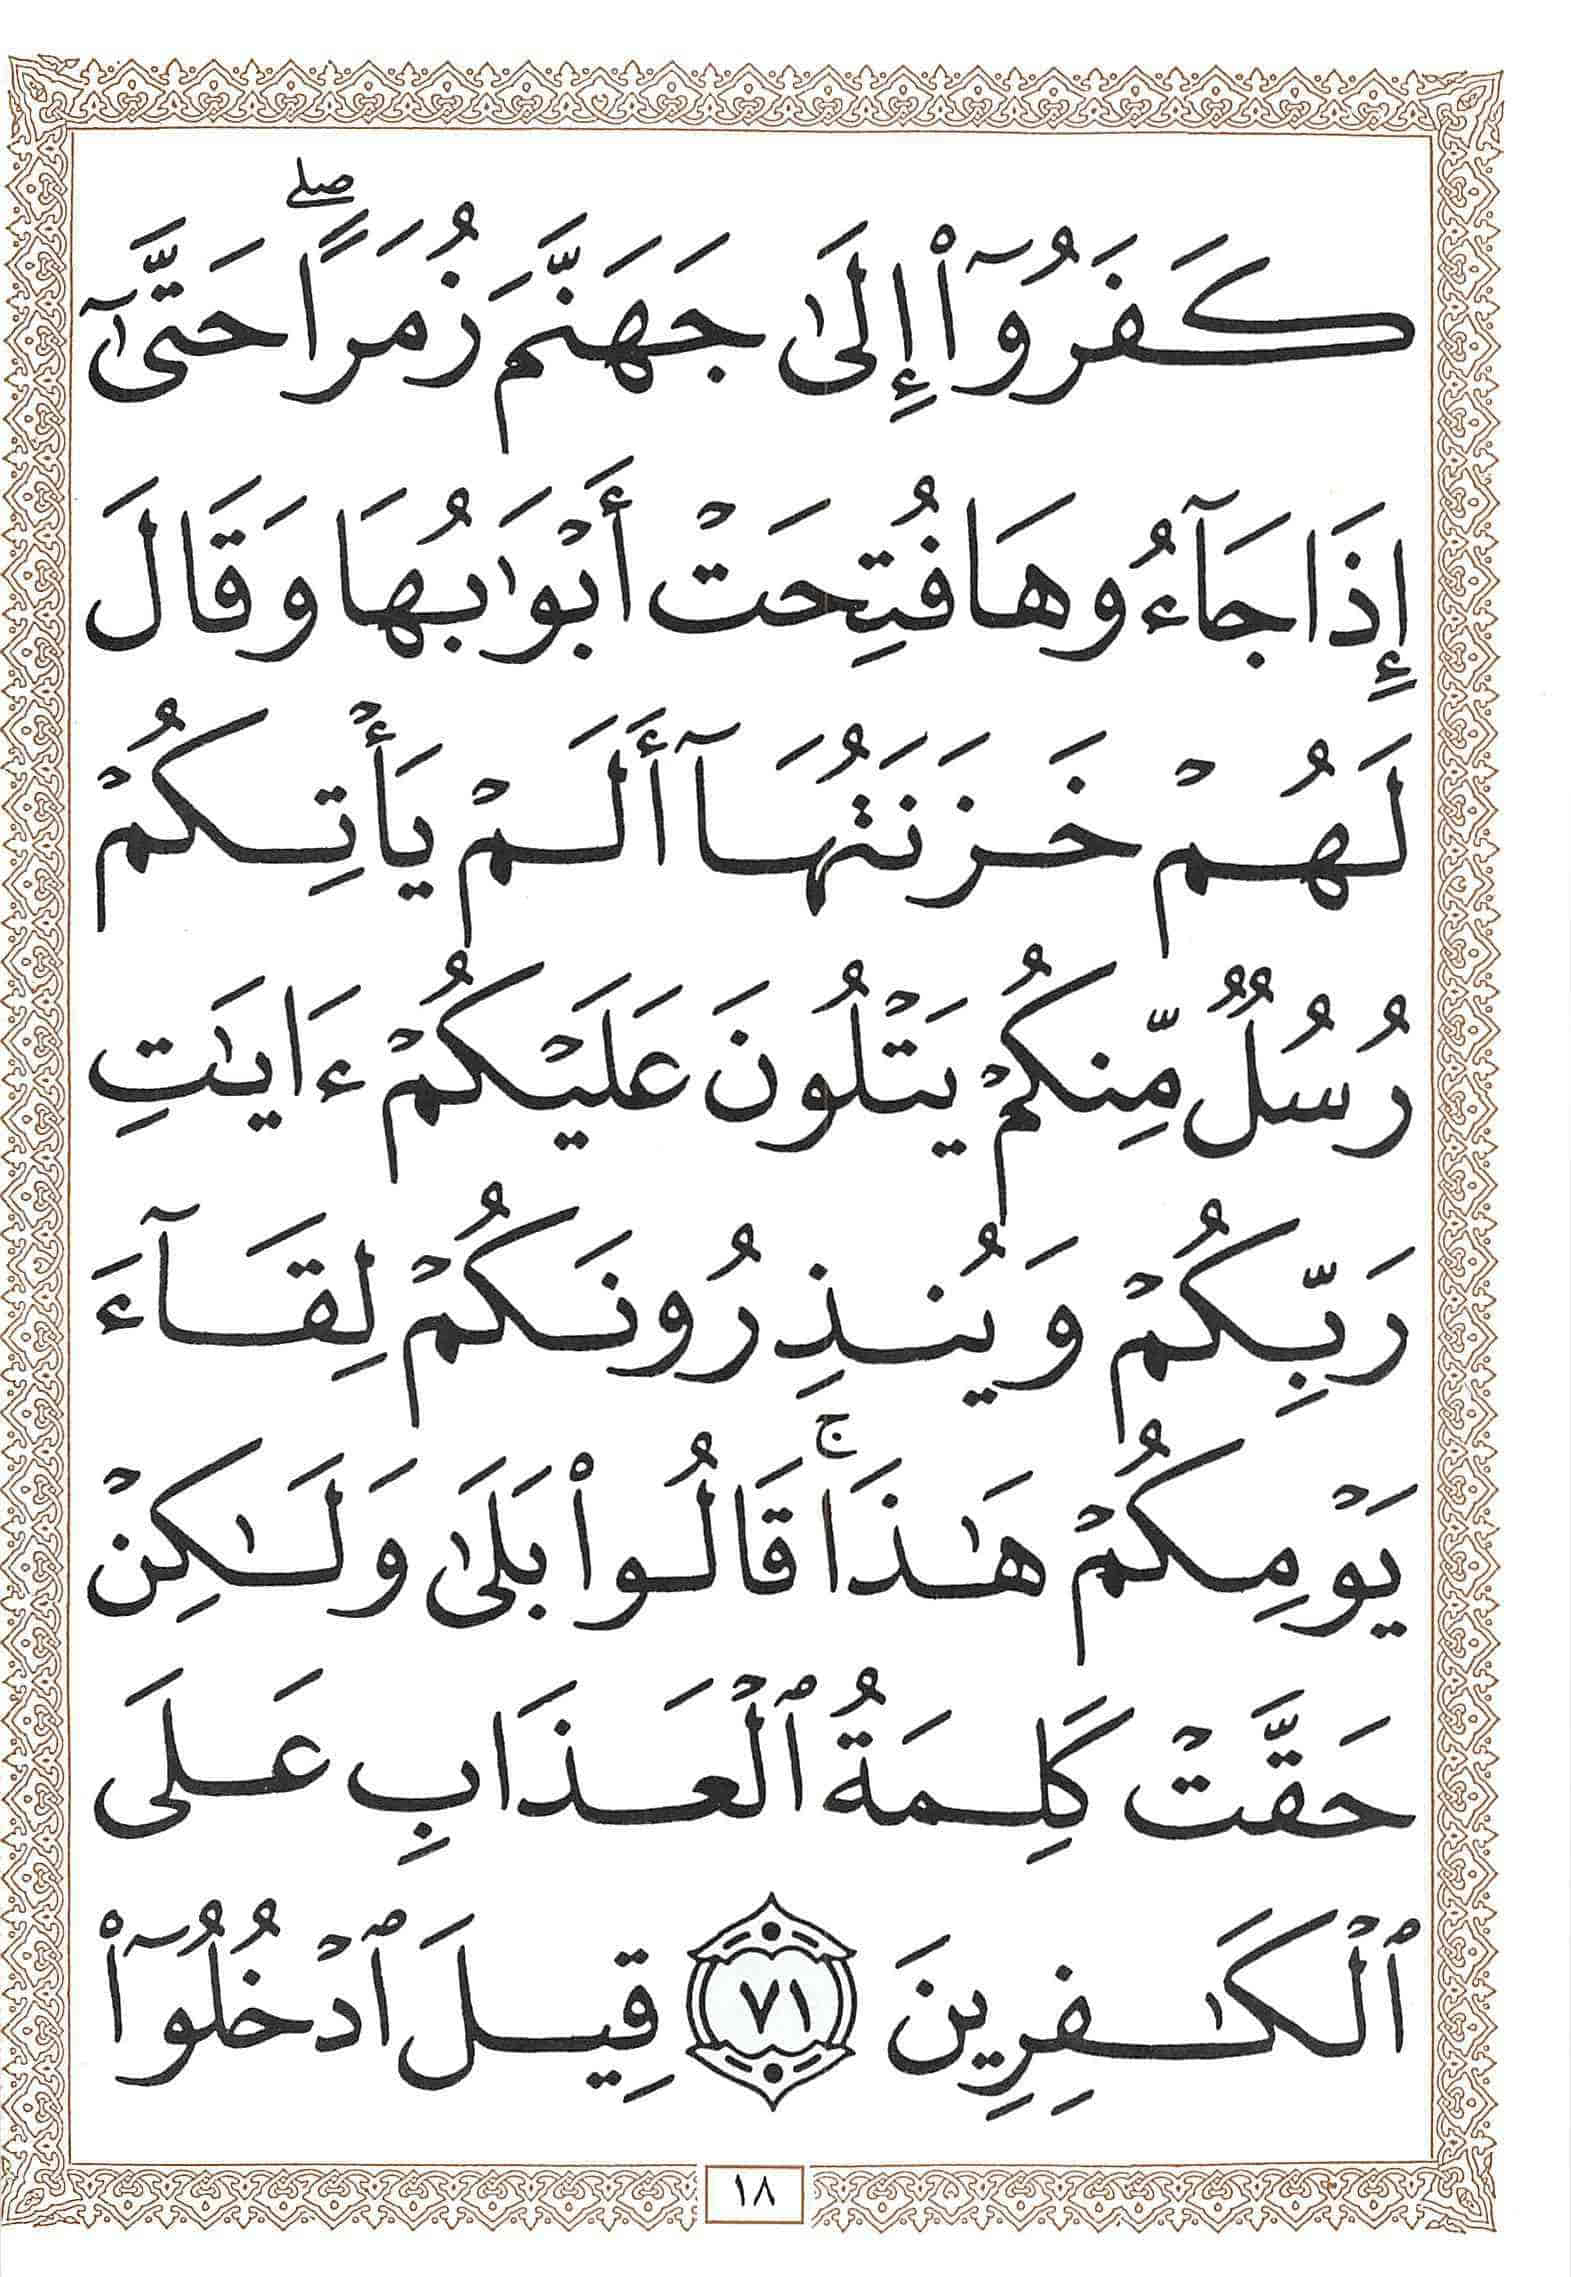 كَفَرُوٓا۟ إِلَىٰ جَهَنَّمَ زُمَرًا ۖ حَتَّىٰٓ
إِذَا جَآءُوهَا فُتِحَتْ أَبْوَٰبُهَا وَقَالَ
لَهُمْ خَزَنَتُهَآ أَلَمْ يَأْتِكُمْ
رُسُلٌ مِّنكُمْ يَتْلُونَ عَلَيْكُمْ ءَايَٰتِ
رَبِّكُمْ وَيُنذِرُونَكُمْ لِقَآءَ
يَوْمِكُمْ هَٰذَا ۚ قَالُوا۟ بَلَىٰ وَلَٰكِنْ
حَقَّتْ كَلِمَةُ ٱلْعَذَابِ عَلَى
ٱلْكَٰفِرِينَ ٧١ قِيلَ ٱدْخُلُوٓا۟
١٨